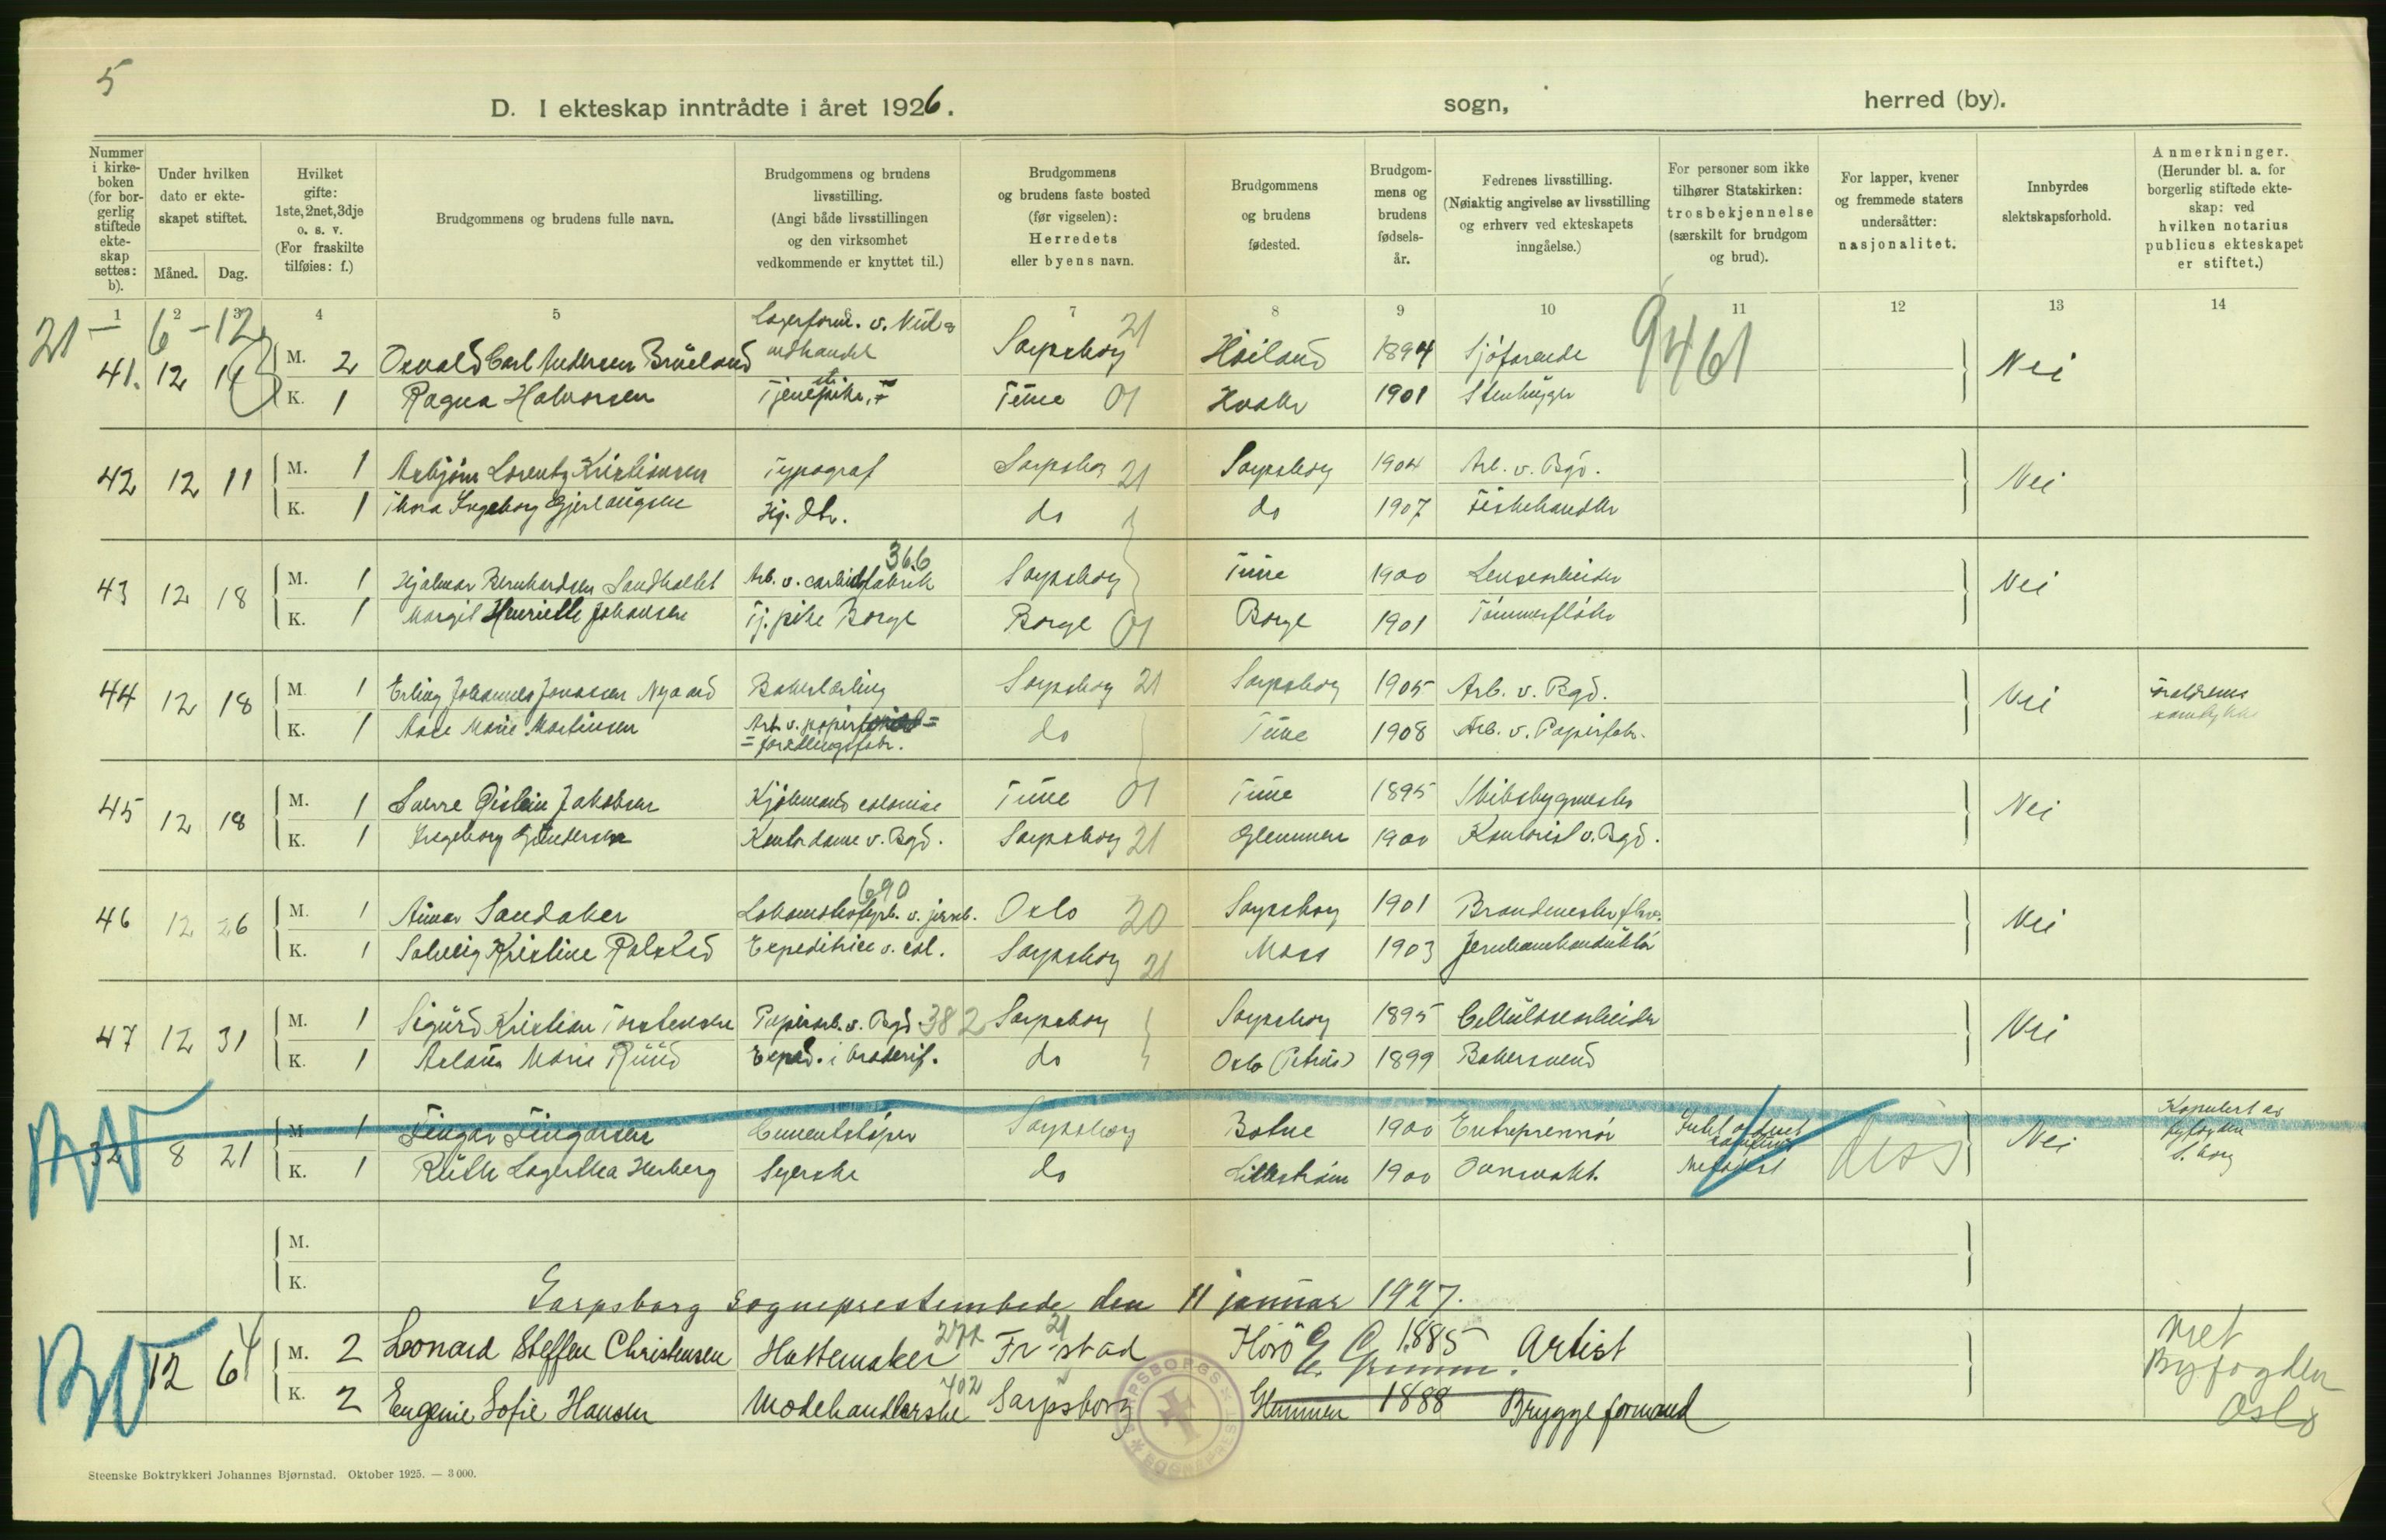 5
D. I ekteskap inntrådte i året 1926. sogn, herred (by).
Nummer i kirkeboken (for borgerlig stiftede ekteskap settes: b).
Under hvilken dato er ekteskapet stiftet.
Måned. Dag.
Hvilket gifte: 1ste, 2net, 3dje o. s. v. (For fraskilte tilføies: f.)
Brudgommens og brudens fulle navn.
Brudgommens og brudens livsstilling. (Angi både livsstillingen og den virksomhet vedkommende er knyttet til.)
Brudgommens og brudens faste bosted (før vigselen): Herredets eller byens navn.
Brudgommens og brudens fødested.
Brudgommens og brudens fødselsår.
Fedrenes livsstilling. (Nøiaktig angivelse av livsstilling og erhverv ved ekteskapets inngåelse.)
For personer som ikke tilhører Statskirken: trosbekjennelse (særskilt for brudgom og brud).
For lapper, kvener og fremmede staters undersåtter: nasjonalitet.
Innbyrdes slektskapsforhold.
Anmerkninger. (Herunder bl. a. for borgerlig stiftede ekteskap: ved hvilken notarius publicus ekteskapet er stiftet.)
1 2 3 4 5 6 7 8 9 10 11 12 13 14
21 — 6 — 12 9461
41. 12 11 M. 2 Osvald Carl Andersen Brüeland Lagerform. v. vedhandel Sarpsborg 21 Høiland 1894 Sjöfarende Nei
K. 1 Ragna Halvorsen Tjenestepike Tune 01 Hvaler 1901 Stenhugger
42 12 11 M. 1 Asbjörn Lorentz Kristiansen Typograf Sarpsborg 21 Sarpsborg 1904 Arb. v. Bgd. Nei
K. 1 Thora Ingeborg Gjerlaugsen do do 1907 Fiskehandler
43 12 18 M. 1 Hjalmar Bernhardsen Sandholtet Arb. v. carbidfabrik 366 Sarpsborg Tune 1900 Lensearbeider Nei
K. 1 Margit Henriette Johansen Tj. pike Borge Borge 01 Borge 1901 Tömmerflöter
44 12 18 M. 1 Erling Johannes Jonassen Nygaard Bakerlærling Sarpsborg 21 Sarpsborg 1905 Arb. v. Bgd. Nei Foreldrenes samtykke
K. 1 Aase Marie Martinsen Arb. v. papir= =foredlingsfabr. do Tune 1908 Arb. v. Papirfabr.
45 12 18 M. 1 Sverre Öistein Jakobsen Kjöbmand colonial Tune 01 Tune 1895 Skibsbygmester Nei
K. 1 Ingeborg Gundersen Kontordame v. Bgd. Sarpsborg 21 Glemmen 1900 Kontorist v. Bgd.
46 12 26 M. 1 Einar Sandaker Lokomotivfyrb. v. jernb. 690 Oslo 20 Sarpsborg 1901 Brandmester Nei
K. 1 Solveig Kristine Rolstad Expeditrice v. col. Sarpsborg 21 Moss 1903 Jernbanekonduktör
47 12 31 M. 1 Sigurd Kristian Torstensen Papirarb. v. Bgd. 382 Sarpsborg Sarpsborg 1895 Cellulosearbeider Nei
K. 1 Aslaug Marie Ruud Exped. i broderif. do Oslo (Petrus) 1899 Bakersvend
BV 32 8 21 M. 1 Fingar Fingarsen Cementstöper Sarpsborg Botne 1900 Entreprennör diss Nei Kopulert av byfogden S.borg
K. 1 Ruth Lagertha Herberg Syerske do Lilleström 1900 Ovnsvakt. Metodist
M.
K.
Sarpsborg sogneprestembede den 11 januar 1927.
BV 12 6 4 M. 2 Leonard Steffen Christensen Hattemaker 272 Fr-stad 21 1885 Artist Viet Byfogden Oslo
K. 2 Eugenie Sofie Hansen Modehandlerske 702 Sarpsborg Glemmen 1888 Bryggeformand
SARPSBORGS SOGNEPREST
Steenske Boktrykkeri Johannes Bjørnstad. Oktober 1925. — 3000.